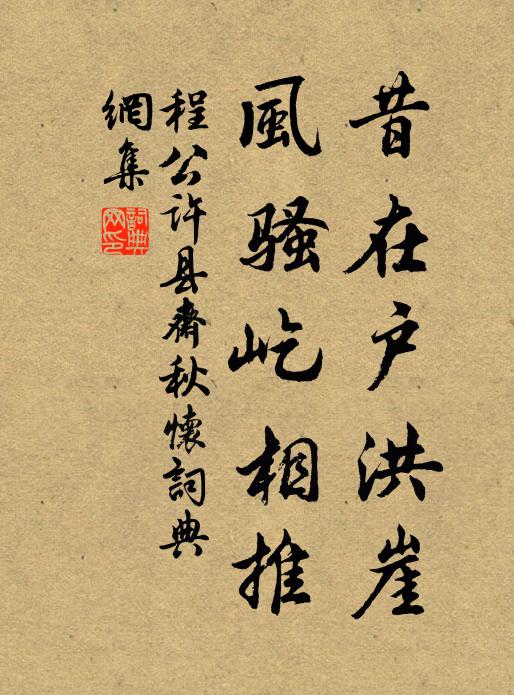 昔在户洪崖
風骚屹相推
程公许县齋秋懷詞典
網集
詞典网印